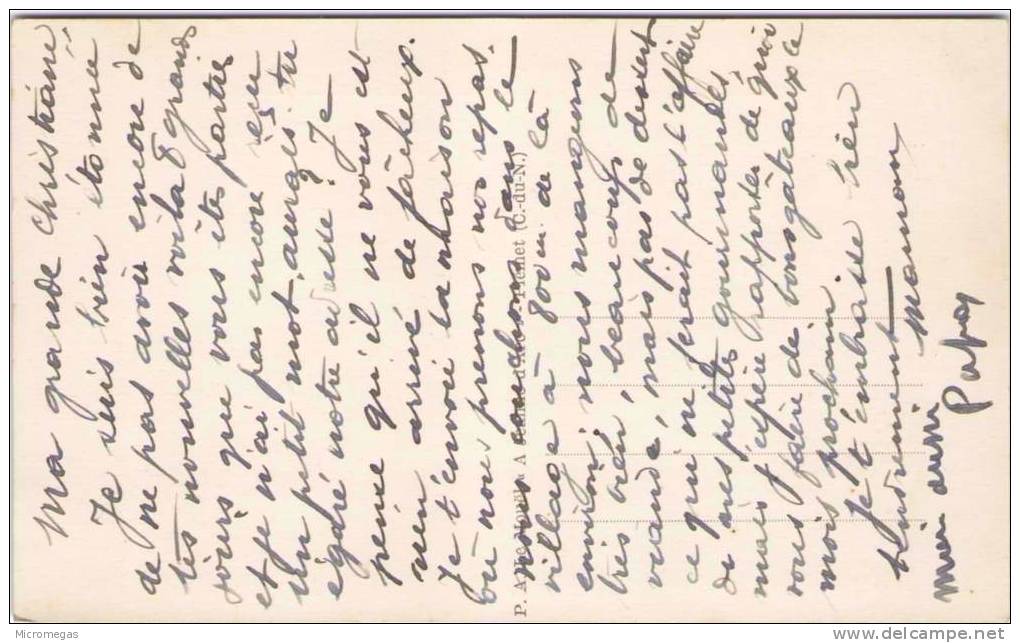 Ma grande Christiane
Je suis bien étonnée
de ne pas avoir encore de
tes nouvelles voila 8 grands
jours que vous êtes parties
et je n'ai pas encore eu
un petit mot, aurais-tu
égaré notre adresse? Je
pense qu'il ne vous est
rien arrivé de fâcheux.
Je t'envoie la maison
où nous prenons nos repas.
nous couchons dans le
village à 800m de là
environ, nous mangeons
très bien, beaucoup de
viande, mais pas de dessert
ce qui ne ferait pas l'affaire
de mes petites gourmandes
mais j'espère rapporter de quoi
vous faire de bons gâteaux le
mois prochain
Je t'embrasse bien
tendrement
Maman
moi aussi
Papa
P. A. Le
(C.-du-N.)
Micromegas
delcampe.net